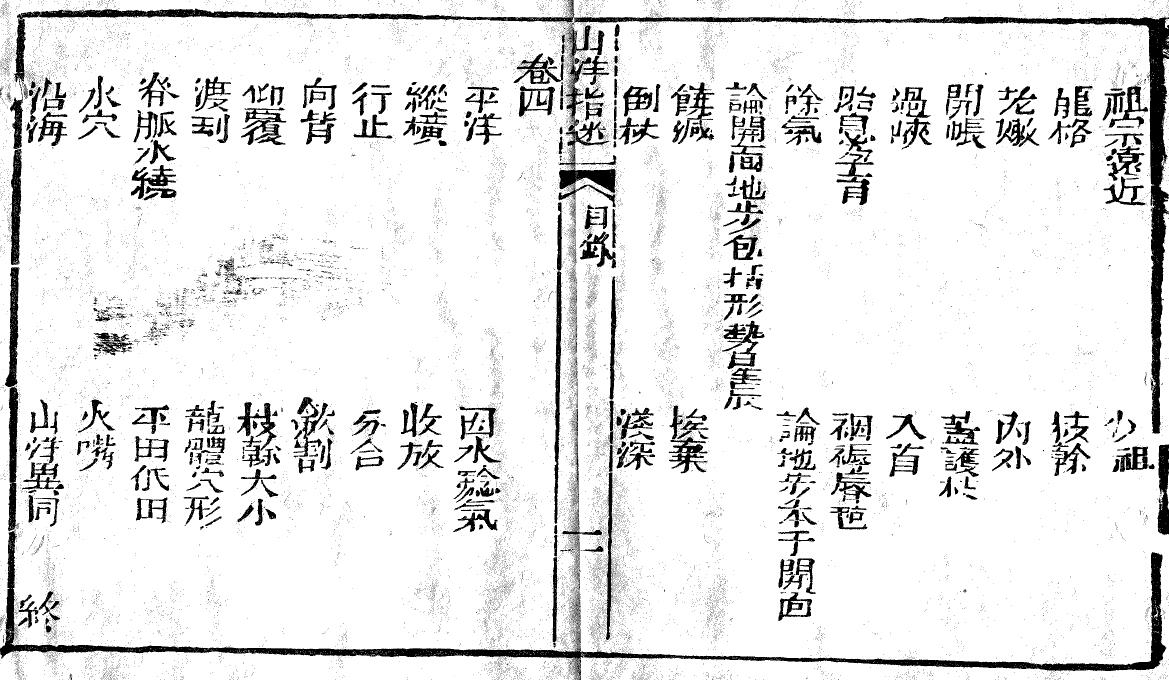 祖宗遠近　少祖
龍格　枝幹
老嫩　內外
開帳　蓋護枝
過峽　入首
胎息孕育　裀褥唇氊
餘氣　論地步本于開面
論開面地步包括形勢星辰
饒減　挨棄
倒杖　淺深
山洋指迷　目錄　二
卷四
平洋　因水驗氣
縱橫　收放
行止　分合
向背　歛割
仰覆　枝幹大小
渡到　龍體穴形
脊脈水繞　平田低田
水穴　火嘴
沿海　山洋異同　終